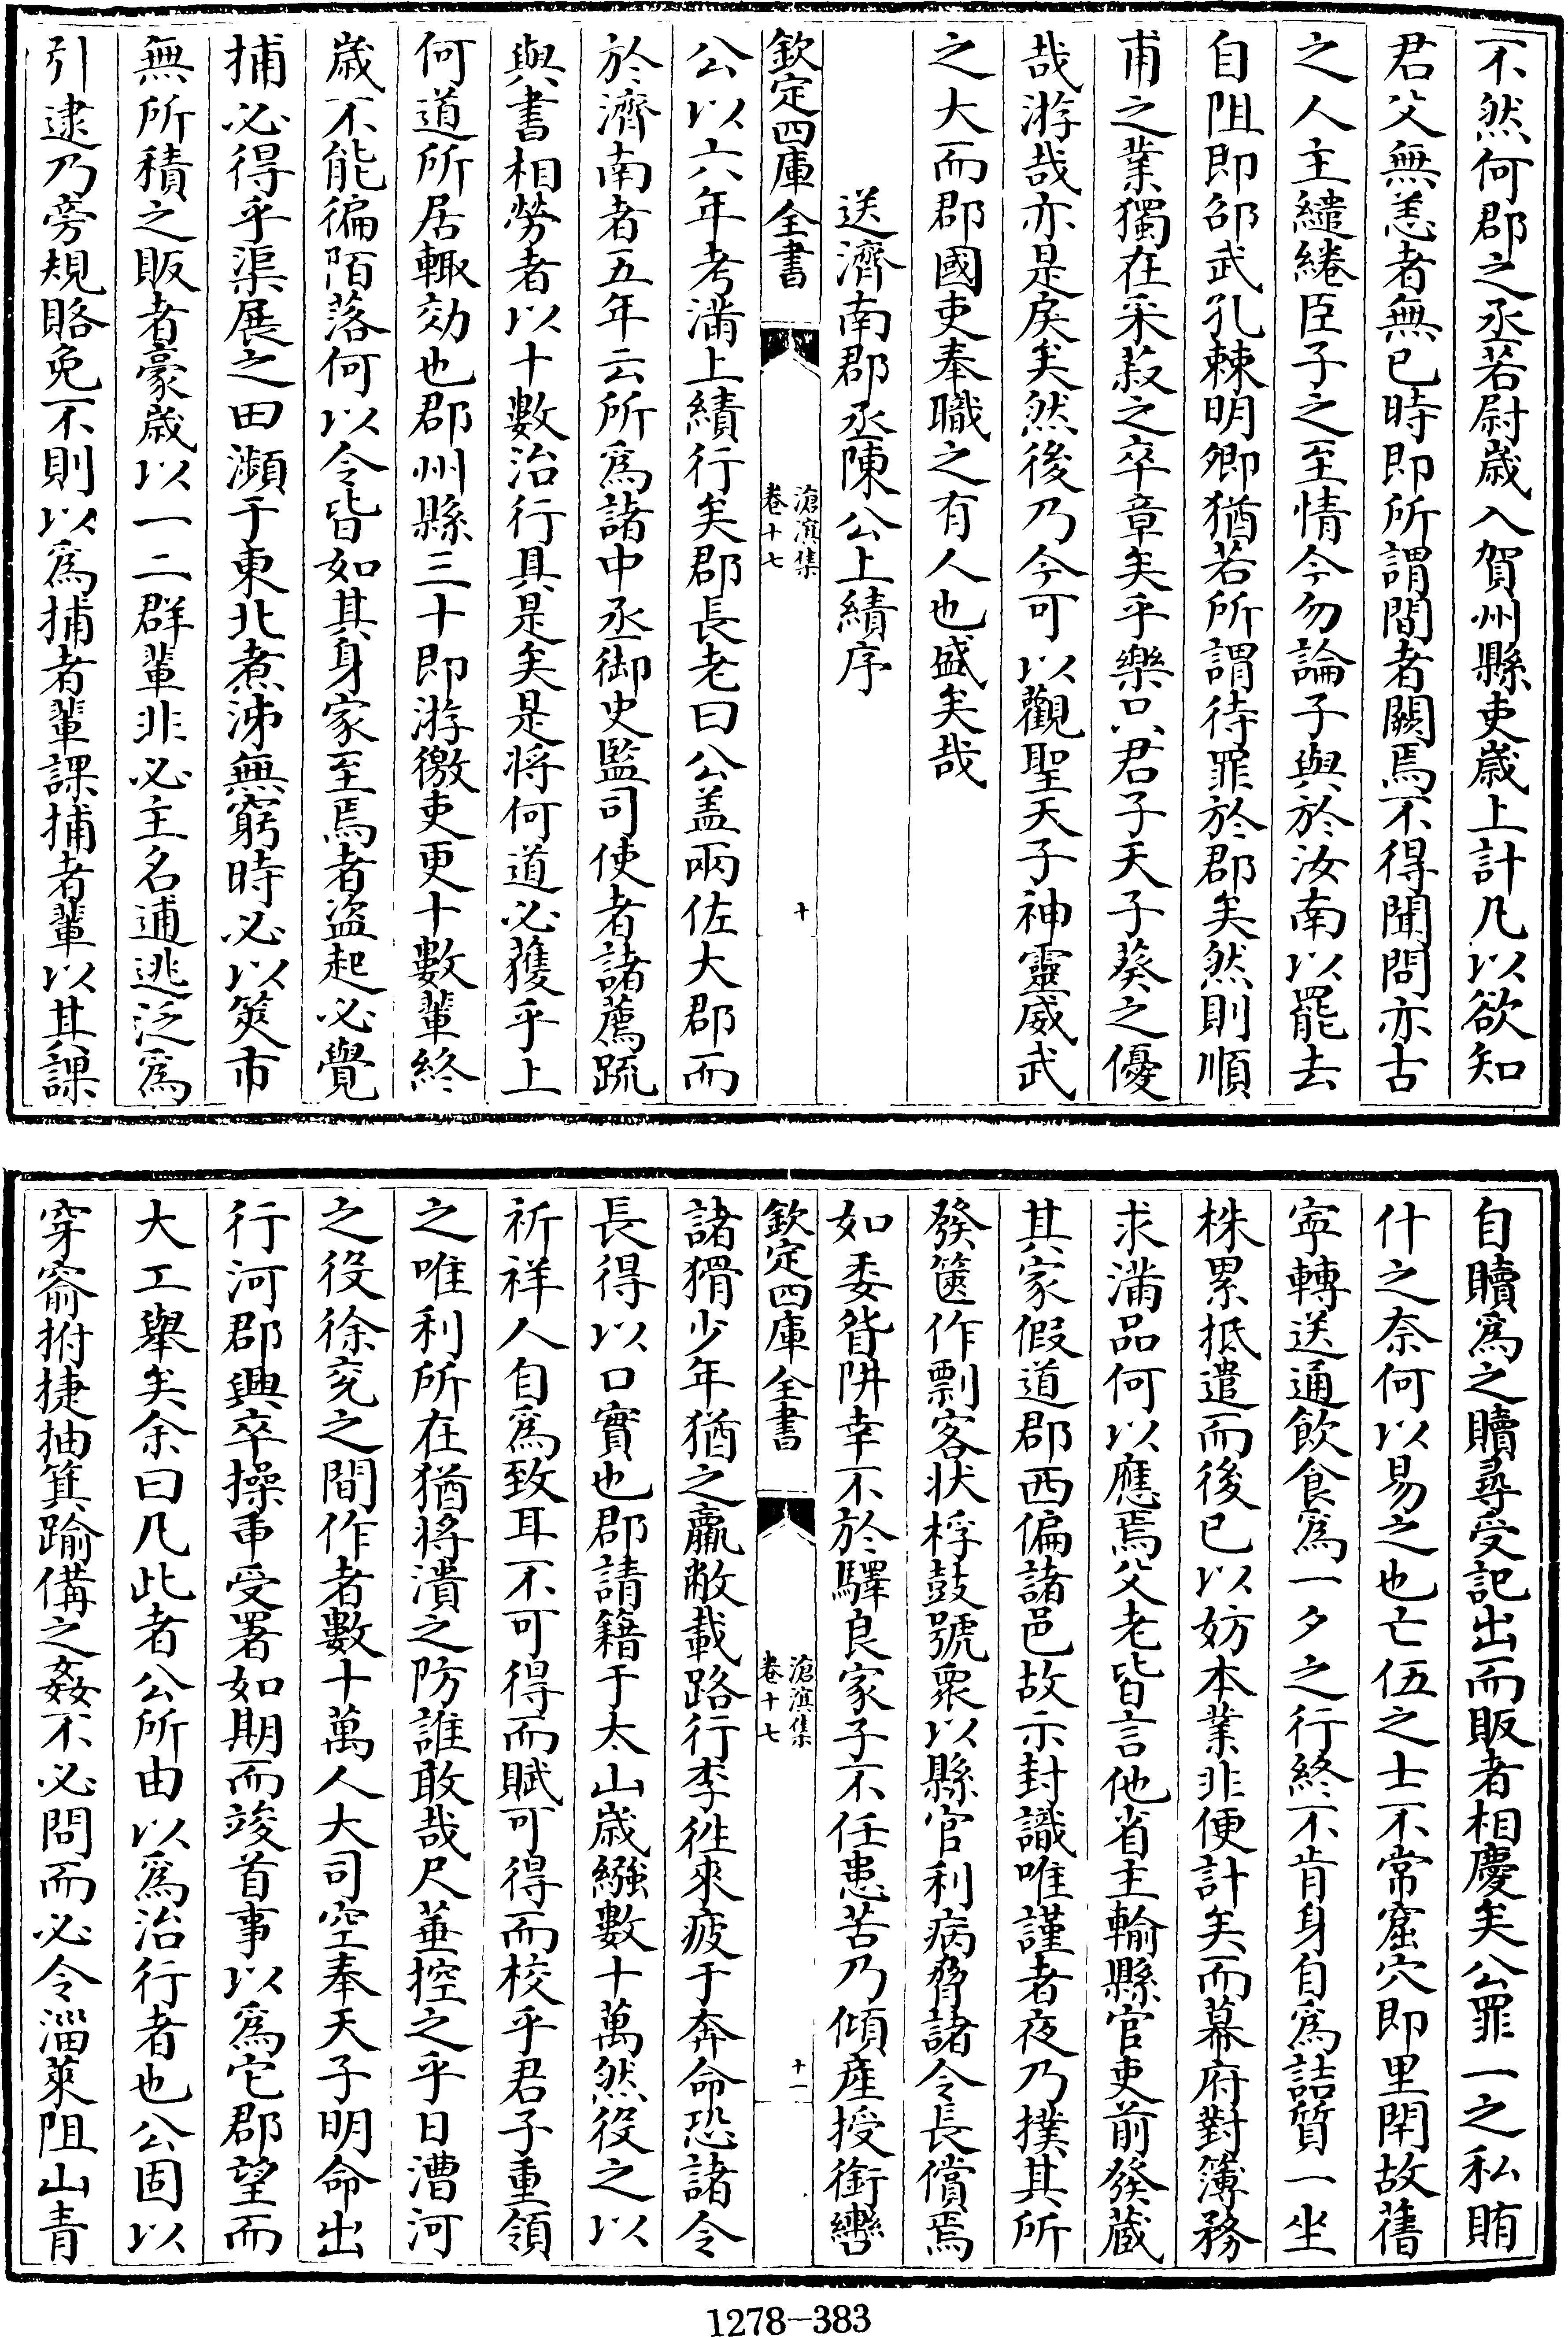 不然何郡之丞若尉歲入賀州縣吏歲上計凡以欲知
君父無恙者無已時即所謂間者闕焉不得聞問亦古
之人主繾綣臣子之至情今勿論子與於汝南以罷去
自阻即邵武孔棘明卿猶若所謂待罪於郡矣然則順
甫之業獨在采菽之卒章矣乎樂只君子天子葵之優
哉游哉亦是戾矣然後乃今可以觀聖天子神靈威武
之大而郡國吏奉職之有人也盛矣哉
送濟南郡丞陳公上績序
欽定四庫全書
滄溟集
卷十七
十
公以六年考滿上績行矣郡長老曰公盖兩佐大郡而
於濟南者五年云所爲諸中丞御史監司使者諸薦疏
與書相勞者以十數治行具是矣是將何道必獲乎上
何道所居輙効也郡州縣三十即游徼吏更十數輩終
歲不能徧陌落何以令皆如其身家至焉者盜起必覺
捕必得乎渠展之田瀕于東北煮沸無窮時必以筴市
無所積之販者豪歲以一二群輩非必主名逋逃泛爲
引逮乃旁規賂免不則以爲捕者輩課捕者輩以其課
自贖爲之贖尋受記出而販者相慶矣公罪一之私賄
什之奈何以易之也亡伍之士不常窟穴即里閈故舊
寧轉送通飲食爲一夕之行終不肯身自爲詰質一坐
株累抵遣而後已以妨本業非便計矣而幕府對簿務
求滿品何以應焉父老皆言他省主輸縣官吏前發蔵
其家假道郡西偏諸邑故示封識唯謹者夜乃撲其所
發篋作剽客状桴鼓號衆以縣官利病脅諸令長償焉
如委眢阱幸不於驛良家子不任患苦乃傾產授銜轡
欽定四庫全書
滄溟集
卷十七
十一
諸猾少年猶之羸敝載路行李徃來疲于奔命恐諸令
長得以口實也郡請籍于太山歲繈數十萬然役之以
祈祥人自爲致耳不可得而賦可得而校乎君子重領
之唯利所在猶將潰之防誰敢哉尺箠控之乎日漕河
之役徐兖之間作者數十萬人大司空奉天子明命出
行河郡興卒操臿受署如期而竣首事以爲它郡望而
大工舉矣余曰凡此者公所由以爲治行者也公固以
穿窬拊揵抽箕踰備之姦不必問而必令淄萊阻山青
1278-383